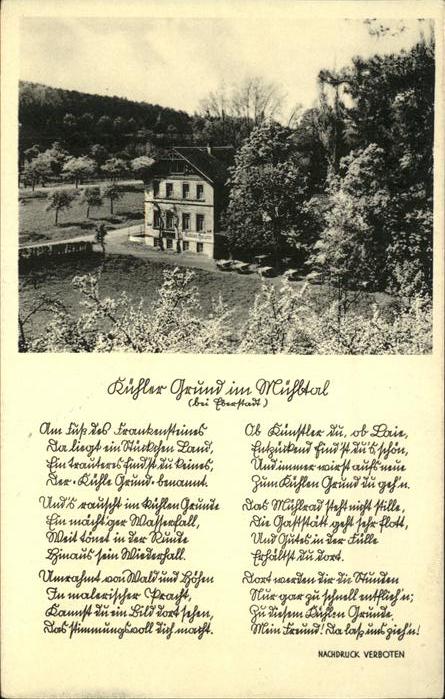 Kühler Grund im Mühltal
(bei Eberstadt)
Am Fuß des Frankensteines
Da liegt ein Stückchen Land,
Ein trauteres find'st du keines,
Der "Kühle Grund" benannt.
Und's rauscht im kühlen Grunde
Ein mächt'ger Wasserfall,
Weit tönet in der Runde
Hinaus sein Wiederhall.
Umrahmt von Wald und Höhen
In malerischer Pracht,
Kannst du ein Bild dort sehen,
Das stimmungsvoll dich macht.
Ob Künstler du, ob Laie,
Entzückend find'st du's schön,
Und immer wirst aufs neue
Zum Kühlen Grund du geh'n.
Das Mühlrad steht nicht stille,
Die Gaststätt geht sehr flott,
Und Gutes in der Fülle
Erhältst du dort.
Dort werden dir die Stunden
Nur gar zu schnell entflieh'n;
Zu diesem Kühlen Grunde
Mein Freund! Da laß uns zieh'n!
NACHDRUCK VERBOTEN